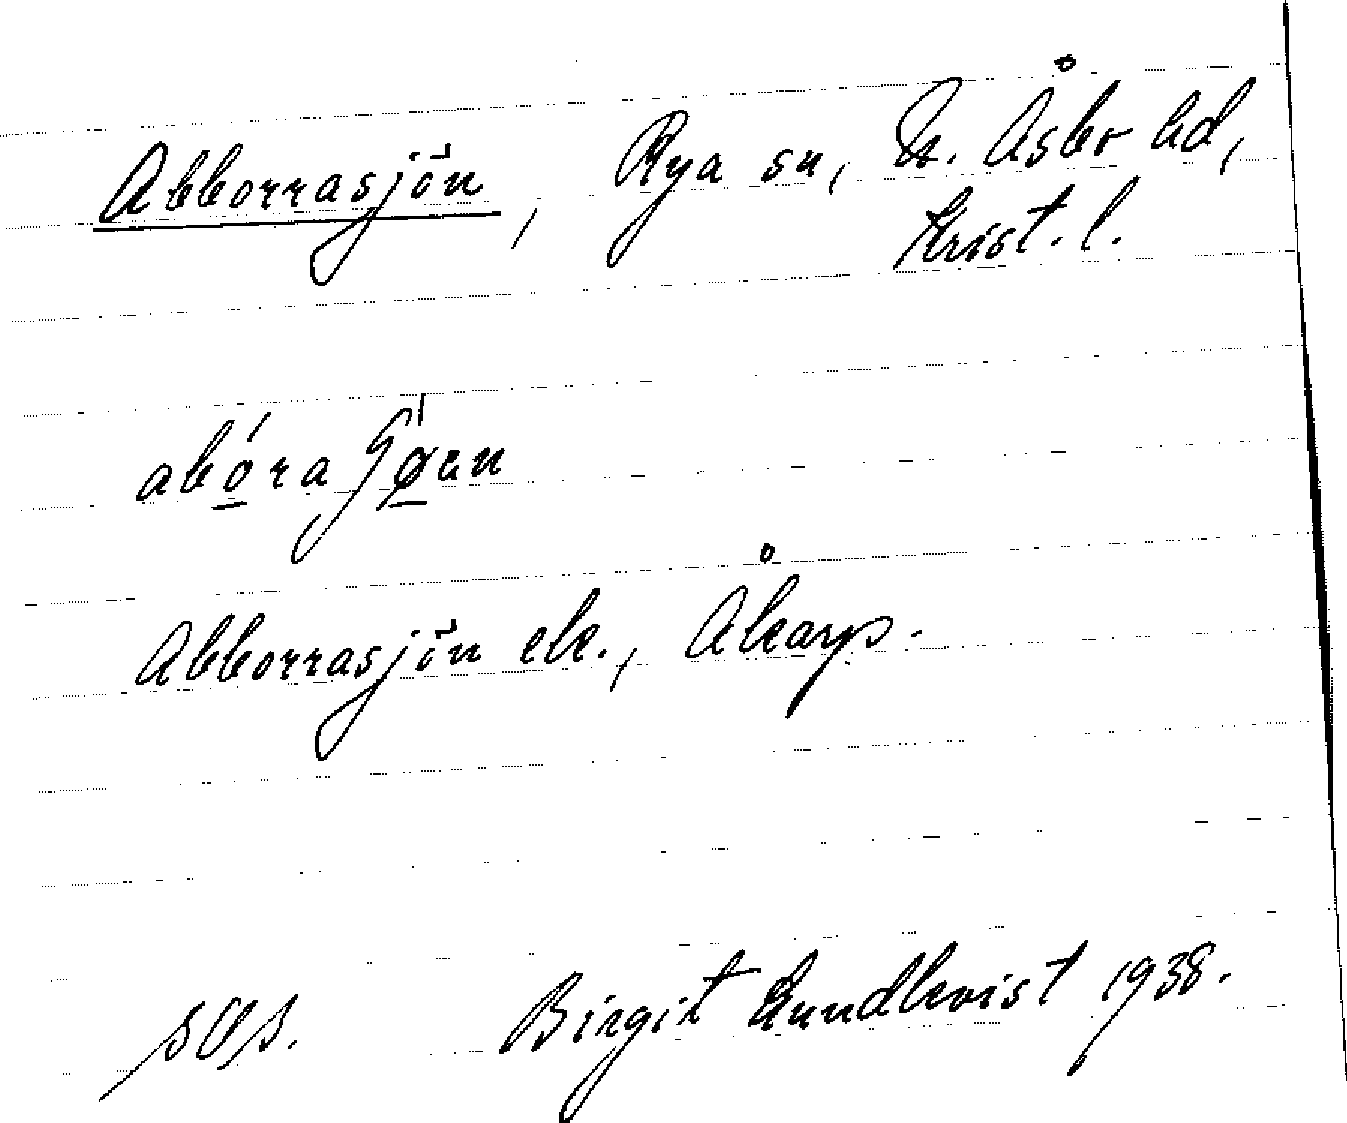 Abborrasjön, Rya sn, N. Åsbo hd,
Krist. l.
Abborrasjön ek., Åkarp.
sos. Birgit Lundkvist 1938.